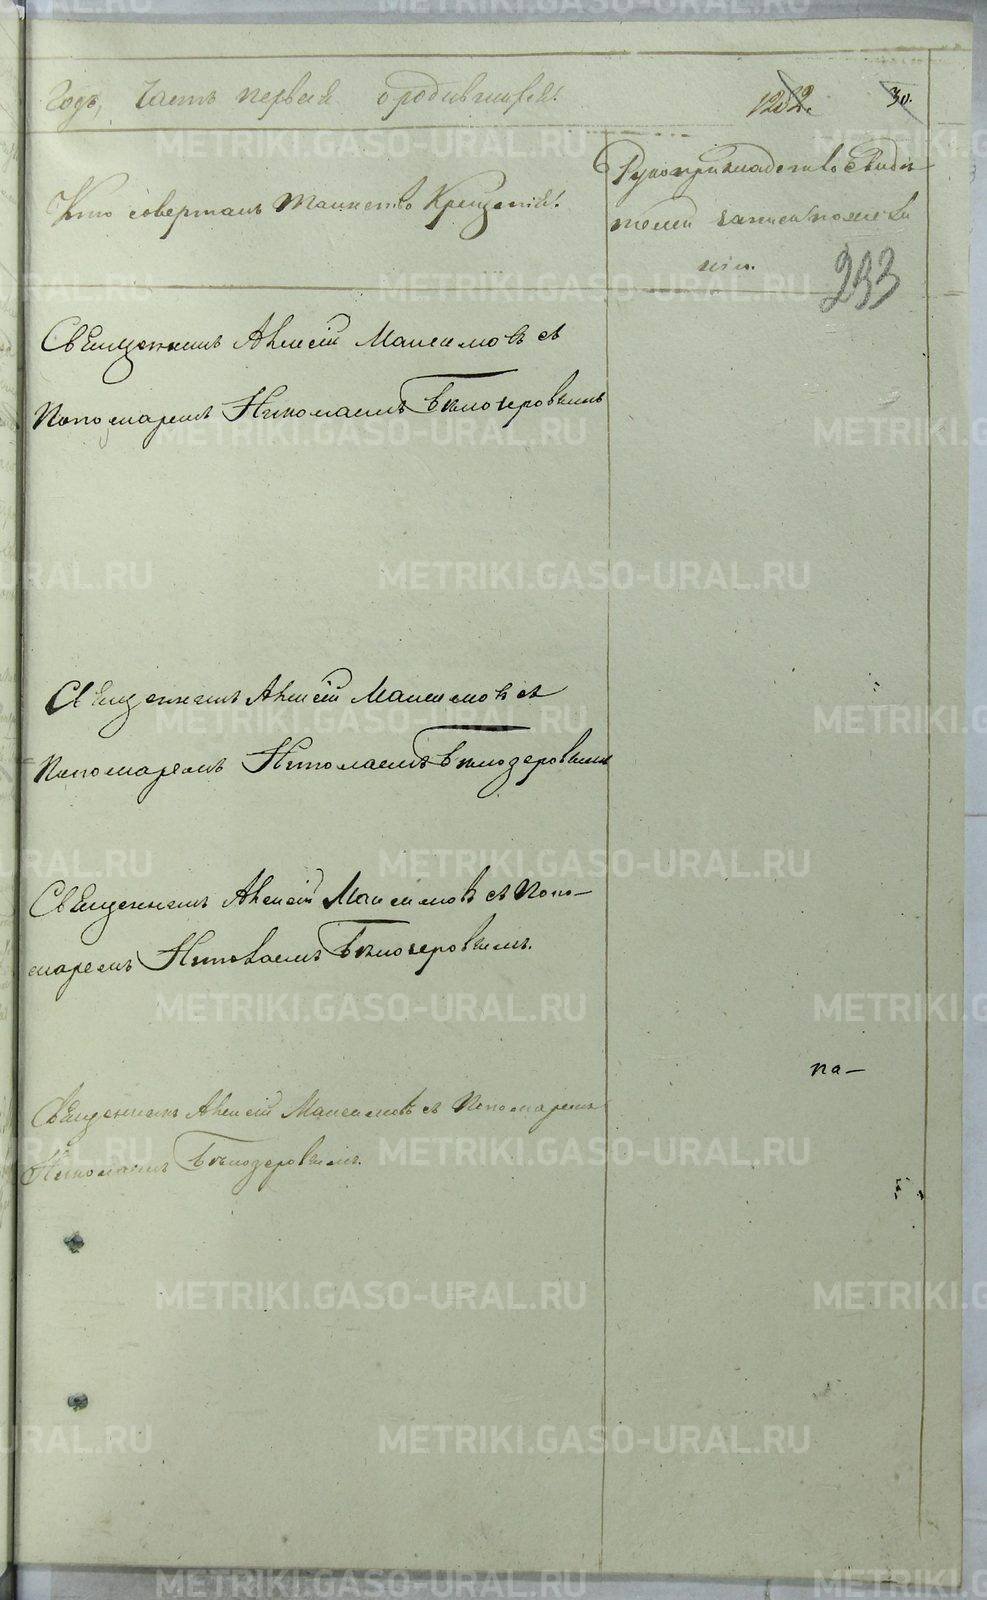 Годъ, Часть первая о родившихся.
1202.
30.
Кто совершалъ таинство Крещенія.
Рукоприкладство свидѣ-
телей записи по жела-
нію.
233
Священникъ Алексій Максимовъ съ
Пономаремъ Николаемъ Бѣлозеровымъ
Священникъ Алексій Максимовъ съ
Пономаремъ Николаемъ Бѣлозеровымъ
Священникъ Алексій Максимовъ съ Поно-
маремъ Николаемъ Бѣлозеровымъ.
на-
Священникъ Алексій Максимовъ съ Пономаремъ
Николаемъ Бѣлозеровымъ.
METRIKI.GASO-URAL.RU